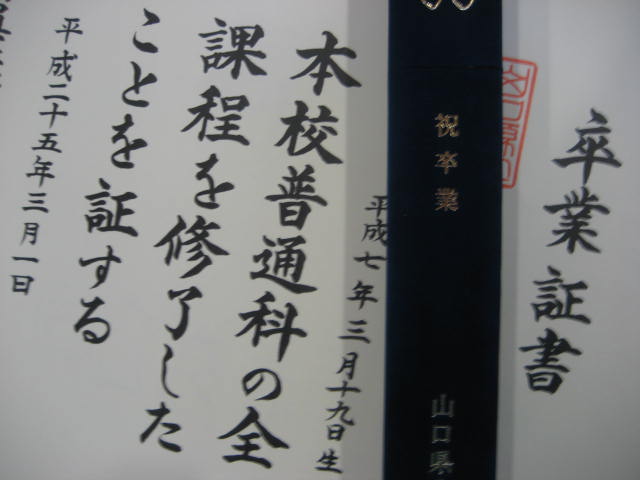 卒業証書
祝卒業
山口県
平成七年三月十九日生
本校普通科の全
課程を修了した
ことを証する
平成二十五年三月一日